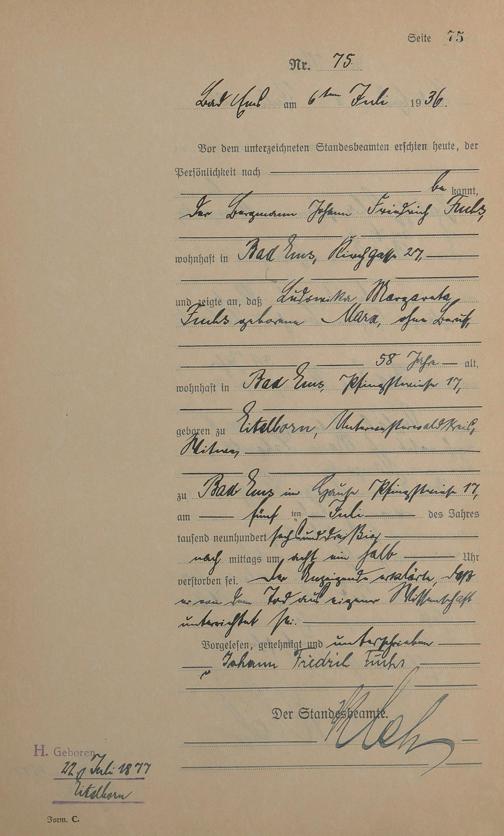 Seite 75
Nr. 75
Bad Ems am 6ten Juli 1936.
Vor dem unterzeichneten Standesbeamten erschien heute, der
Persönlichkeit nach
be kannt,
der Bergmann Johann Friedrich Fuchs,
wohnhaft in Bad Ems, Kirchgasse 27,
und zeigte an, daß Ludowika Margareta
Fuchs geborene Marx, ohne Beruf,
58 Jahre alt,
wohnhaft in Bad Ems, 17,
geboren zu Eitelborn, Unterwesterwaldkreis,
Witwe,
zu Bad Ems im Hause 17,
am fünften Juli des Jahres
tausend neunhundert sechsunddreißig
nach mittags um acht ein halb Uhr
verstorben sei. Der Anzeigende erklärte, daß
er von dem Tod aus eigener Wissenschaft
unterrichtet sei.
Vorgelesen, genehmigt und unterschrieben
Johann Friedrich Fuchs
Der Standesbeamte.
H. Geboren
22. Juli 1877
Eitelborn
Form. C.